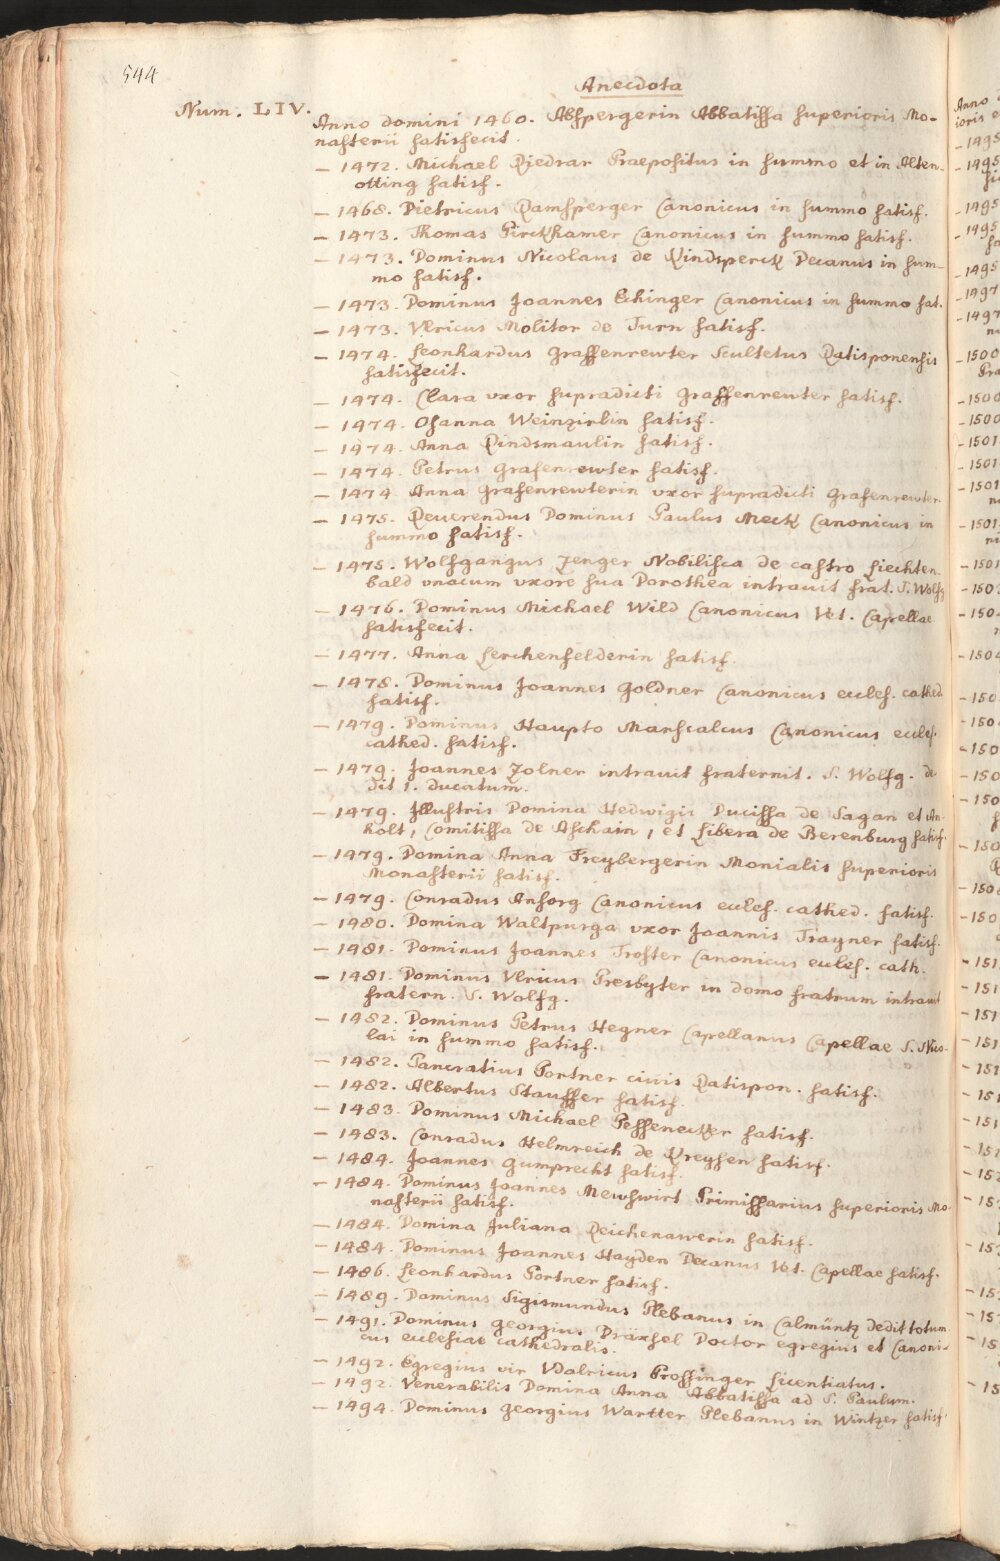 544
Anecdota
Num. LIV.
Anno domini 1460. Abspergerin Abbatissa superioris Mo-
nasterii satisfecit.
– 1472. Michael Riedrar Praepositus in summo et in Alten-
otting satisf.
– 1468. Dietricus Ramsperger Canonicus in summo satisf.
– 1473. Thomas Pirckhamer Canonicus in summo satisf.
– 1473. Dominus Nicolaus de Kindsperck Decanus in sum-
mo satisf.
– 1473. Dominus Joannes Echinger Canonicus in summo sat.
– 1473. Vlricus Molitor de Turn satisf.
– 1474. Leonhardus Graffenrewter Scultetus Ratisponensis
satisfecit.
– 1474. Clara vxor supradicti Graffenreuter satisf.
– 1474. Osanna Weinzirlin satisf.
– 1474. Anna Rindsmaulin satisf.
– 1474. Petrus Grafenrewter satisf.
– 1474 Anna Grafenrewterin vxor supradicti Grafenrewter.
– 1475. Reuerendus Dominus Paulus Meck Canonicus in
summo satisf.
– 1475. Wolfgangus Zenger Nobilista de castro Liechten-
bald vnacum vxore sua Dorothea intrauit frat. S. Wolfg
– 1476. Dominus Michael Wild Canonicus Vet. Capellae
satisfecit.
– 1477. Anna Lerchenfelderin satisf.
– 1478. Dominus Joannes Goldner Canonicus eccles. cathed
satisf.
– 1479. Dominus Haupto Marscalcus Canonicus eccles.
cathed. satisf.
– 1479. Joannes Zolner intrauit fraternit. S. Wolfg. de-
dit 1. ducatum.
– 1479. Illustris Domina Hedwigis Ducissa de Sagan et An-
holt, Comitissa de Aschain, et Libera de Berenburg satisf.
– 1479. Domina Anna Freybergerin Monialis superioris
Monasterii satisf.
– 1479. Conradus Ansorg Canonicus eccles. cathed. satisf.
– 1480. Domina Waltpurga vxor Joannis Trayner satisf.
– 1481. Dominus Joannes Troster Canonicus eccles. cath.
– 1481. Dominus Vlricus Presbyter in domo fratrum intrauit
fratern. S. Wolfg.
– 1482. Dominus Petrus Hegner Capellanus Capellae S. Nico-
lai in summo satisf.
– 1482. Pancratius Portner ciuis Ratispon. satisf.
– 1482. Albertus Stauffer satisf.
– 1483. Dominus Michael Peffenecker satisf.
– 1483. Conradus Helmreich de Kreysen satisf.
– 1484. Joannes Gumprecht satisf.
– 1484. Dominus Joannes Mewswirt Primissarius superioris Mo-
nasterii satisf.
– 1484. Domina Juliana Reichenawerin satisf.
– 1484. Dominus Joannes Hayden Decanus Vet. Capellae satisf.
– 1486. Leonhardus Portner satisf.
– 1489. Dominus Sigismundus Plebanus in Calmüntz dedit totum.
– 1491. Dominus Georgius Dräxsel Doctor egregius et Canoni-
cus ecclesiae cathedralis.
– 1492. Egregius vir Vdalricus Prossinger Licentiatus.
– 1492. Venerabilis Domina Anna Abbatissa ad S. Paulum.
– 1494. Dominus Georgius Wartter Plebanus in Wintzer satisf.